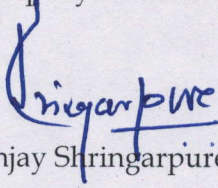 Shringarpure
njay Shringarpure